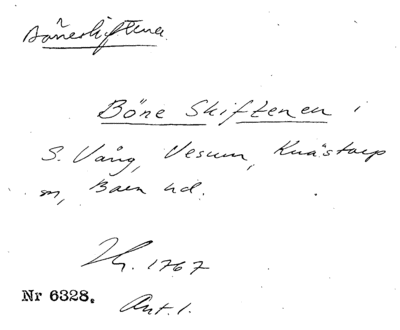 Böneskiftena
Böne Skiftenen i
S. Vång, Vesum, Knästorp
sn, Bara hd.
Lh. 1767
Nr 6328.
Akt. 1.